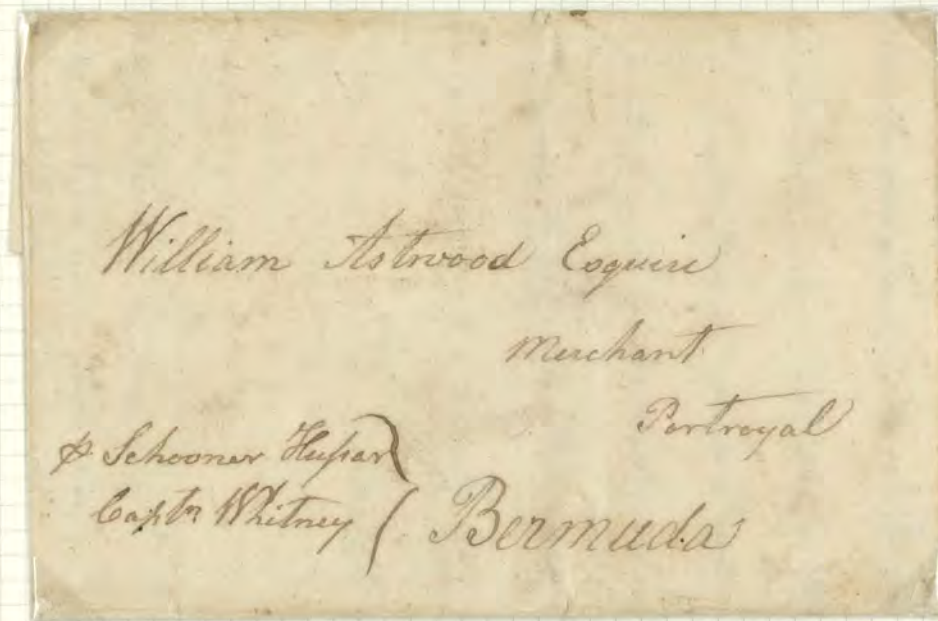 William Astwood Esquire
Merchant
Portroyal
p. Schooner Hussar
Captn. Whitney
Bermuda